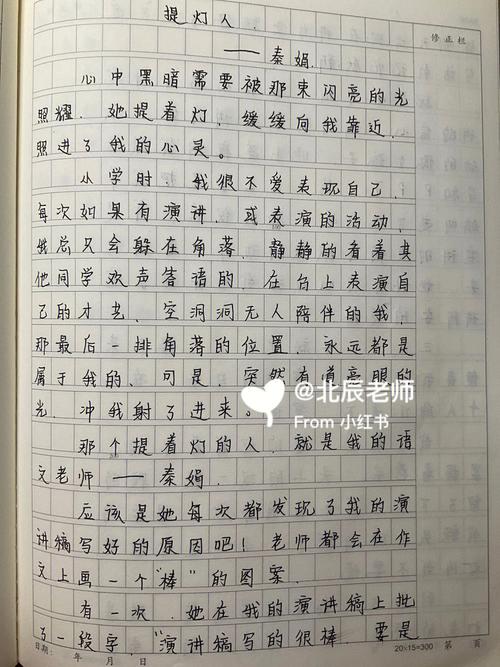 提灯人.
修正栏
——秦娟.
心中黑暗需要被那束闪亮的光
照耀.她提着灯.缓缓向我靠近.
照进了我的心灵。
小学时.我很不爱表现自己.
每次如果有演讲.或表演的活动.
我总只会躲在角落.静静的看着其
他同学欢声答语的.在台上表演自
己的才艺.空洞洞无人陪伴的我.
那最后一排角落的位置.永远都是
属于我的.可是.突然有道亮眼的
光.冲我射了进来。
@北辰老师
From 小红书
那个提着灯的人.就是我的语
文老师——秦娟.
应该是她每次都发现了我的演
讲稿写好的原因吧!老师都会在作
文上画一个"棒"的图案.
有一次.她在我的演讲稿上批
了一段字."演讲稿写的很棒.要是
日期: 年 月 日
20×15=300 第 页